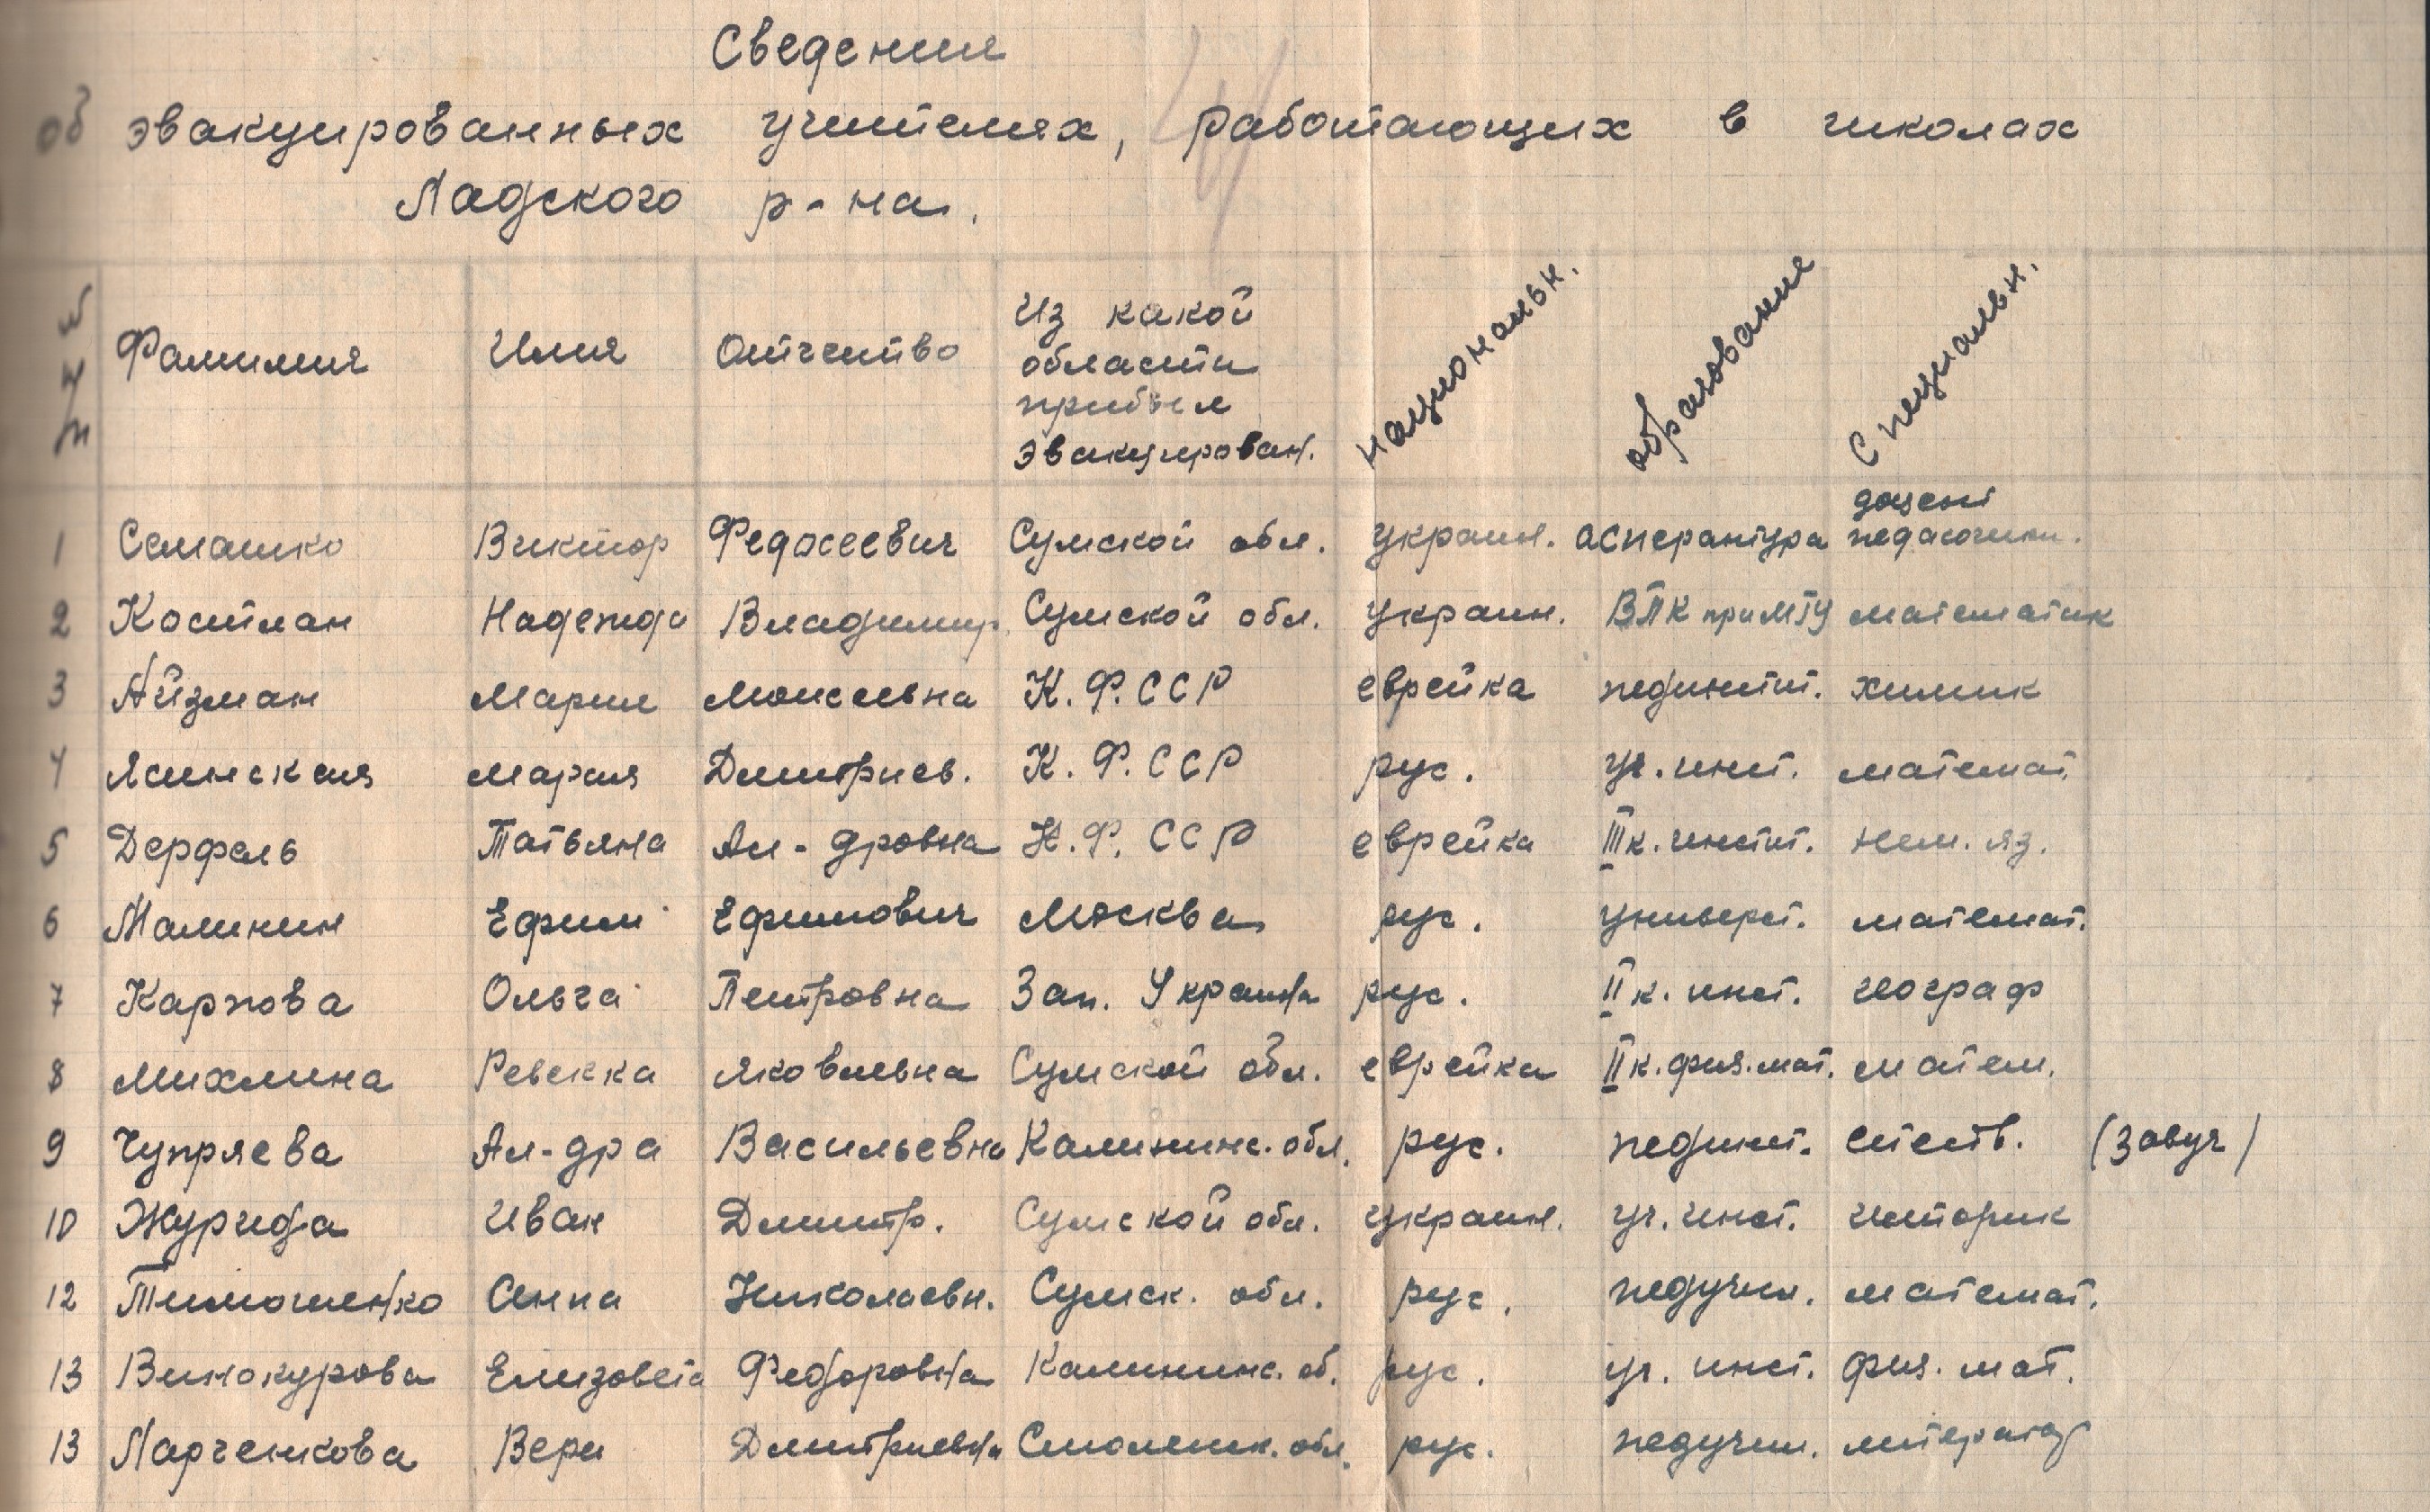 Сведения
об эвакуированных учителях, работающих в школах
Ладского р-на.
№ п/п Фамилия Имя Отчество Из какой области прибыл эвакуирован. национальн. образование специальн.
1 Семашко Виктор Федосеевич Сумской обл. украин. аспирантура доцент педагогики.
2 Костман Надежда Владимир. Сумской обл. украин. ВПК при МГУ математик
3 Айзман Мария Моисеевна К.Ф.ССР еврейка пединстит. химик
4 Ясинская Мария Дмитриев. К.Ф.ССР рус. уч. инст. математ.
5 Дерфель Татьяна Ал-дровна К.Ф.ССР еврейка III к. инстит. нем. яз.
6 Малинин Ефим Ефимович Москва рус. универст. математ.
7 Карпова Ольга Петровна Зап. Украина рус. II к. инст. географ
8 Михлина Ревекка Яковлевна Сумской обл. еврейка II к. физ. мат. матем.
9 Чупряева Ал-дра Васильевна Калининс. обл. рус. пединст. естеств. (завуч)
10 Журида Иван Дмитр. Сумской обл. украин. уч. инст. историк
12 Тимошенко Анна Николаевн. Сумск. обл. рус. педучил. математ.
13 Винокурова Елизовета Федоровна Калининс. об. рус. уч. инст. физ. мат.
13 Ларченкова Вера Дмитриевна Смоленск. обл. рус. педучил. литерат